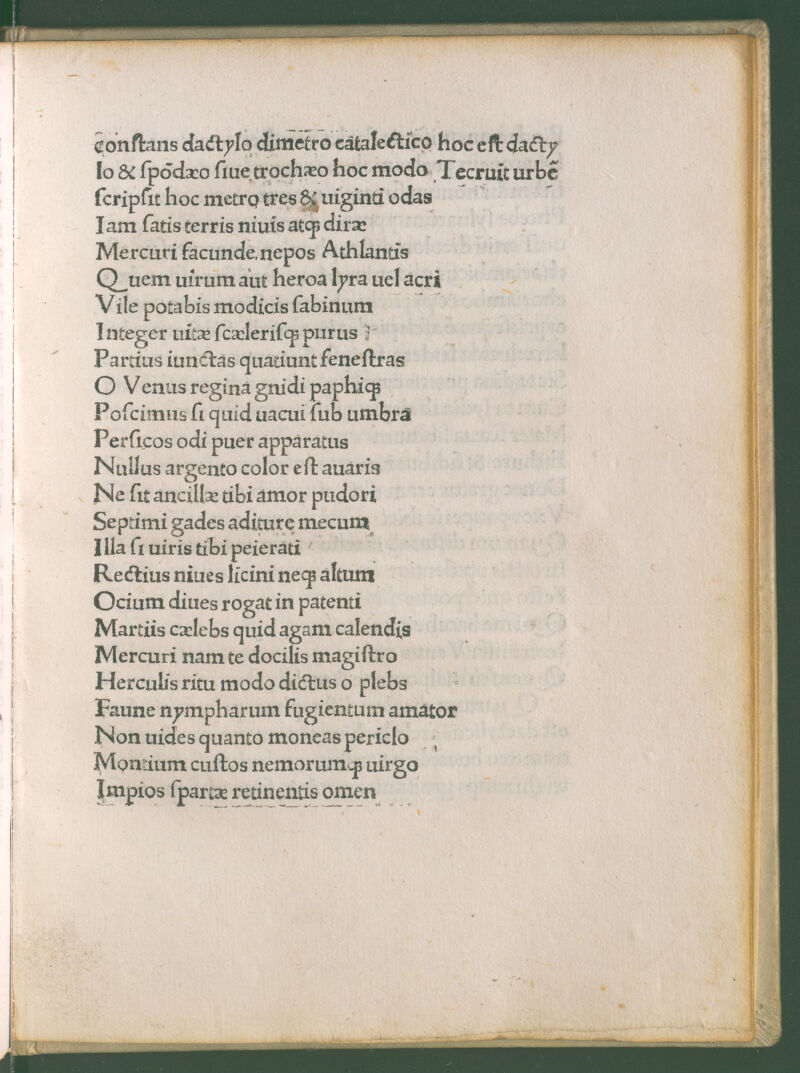 conſtans dactylo dimetro catalectico hoc eſt dacty
lo & ſpōdæo ſiue trochæo hoc modo Tecruit urbē
ſcripſit hoc metro tres & uiginti odas
Iam ſatis terris niuis atqꝫ diræ
Mercuri facunde.nepos Athlantis
Quem uirum aut heroa lyra uel acri
Vile potabis modicis ſabinum
Integer uitæ ſcæleriſqꝫ purus
Partius iunctas quatiunt feneſtras
O Venus regina gnidi paphiqꝫ
Poſcimus ſi quid uacui ſub umbra
Perſicos odi puer apparatus
Nullus argento color eſt auaris
Ne ſit ancillæ tibi amor pudori
Septimi gades aditure mecum
Illa ſi uiris tibi peierati
Rectius niues licini neqꝫ altum
Ocium diues rogat in patenti
Martiis cælebs quid agam calendis
Mercuri nam te docilis magiſtro
Herculis ritu modo dictus o plebs
Faune nympharum fugientum amator
Non uides quanto moneas periclo
Montium cuſtos nemorumqꝫ uirgo
Impios ſpartæ retinentis omen